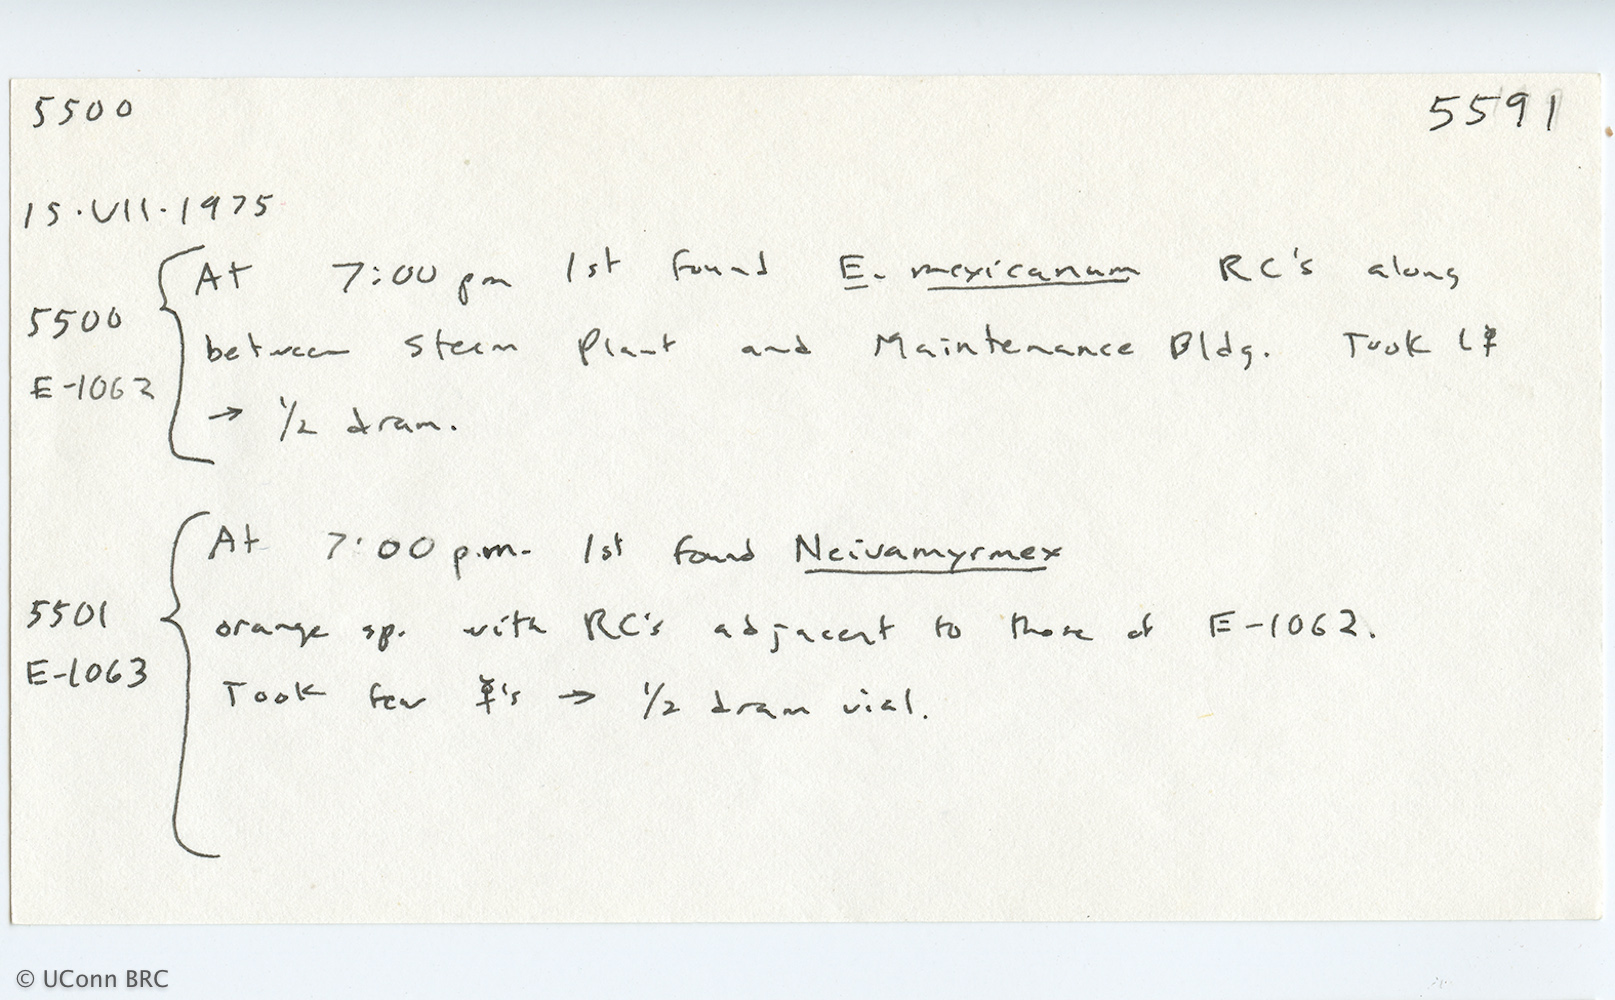 5500 5591
15.VII.1975
At 7:00 pm 1st found E. mexicanum RC's along
5500
between Steam Plant and Maintenance Bldg. Took 1☿
E-1062
→ 1/2 dram.
At 7:00 p.m. 1st found Neivamyrmex
5501
orange sp. with RC's adjacent to those of E-1062.
E-1063
Took few ☿'s → 1/2 dram vial.
© UConn BRC